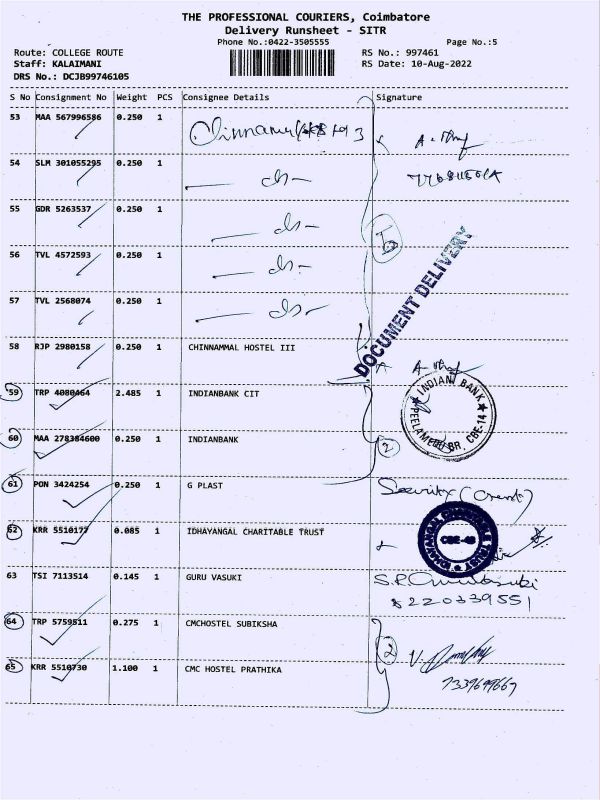 THE PROFESSIONAL COURIERS, Coimbatore
Delivery Runsheet - SITR
Phone No.:0422-3505555 Page No.:5
Route: COLLEGE ROUTE RS No.: 997461
Staff: KALAIMANI RS Date: 10-Aug-2022
DRS No.: DCJB99746105
S No Consignment No Weight PCS Consignee Details Signature
53 MAA 567996586 0.250 1
54 SLM 301055295 0.250 1
55 GDR 5263537 0.250 1
56 TVL 4572593 0.250 1
57 TVL 2568074 0.250 1
DOCUMENT DELIVERY
58 RJP 2980158 0.250 1 CHINNAMMAL HOSTEL III
59 TRP 4080464 2.485 1 INDIANBANK CIT
INDIAN BANK
PEELAMEDU BR, CBE-14
60 MAA 278384600 0.250 1 INDIANBANK 2
61 PON 3424254 0.250 1 G PLAST
62 KRR 5510177 0.085 1 IDHAYANGAL CHARITABLE TRUST
63 TSI 7113514 0.145 1 GURU VASUKI
8220339551
64 TRP 5759811 0.275 1 CMCHOSTEL SUBIKSHA 2
65 KRR 5510730 1.100 1 CMC HOSTEL PRATHIKA
7339699667